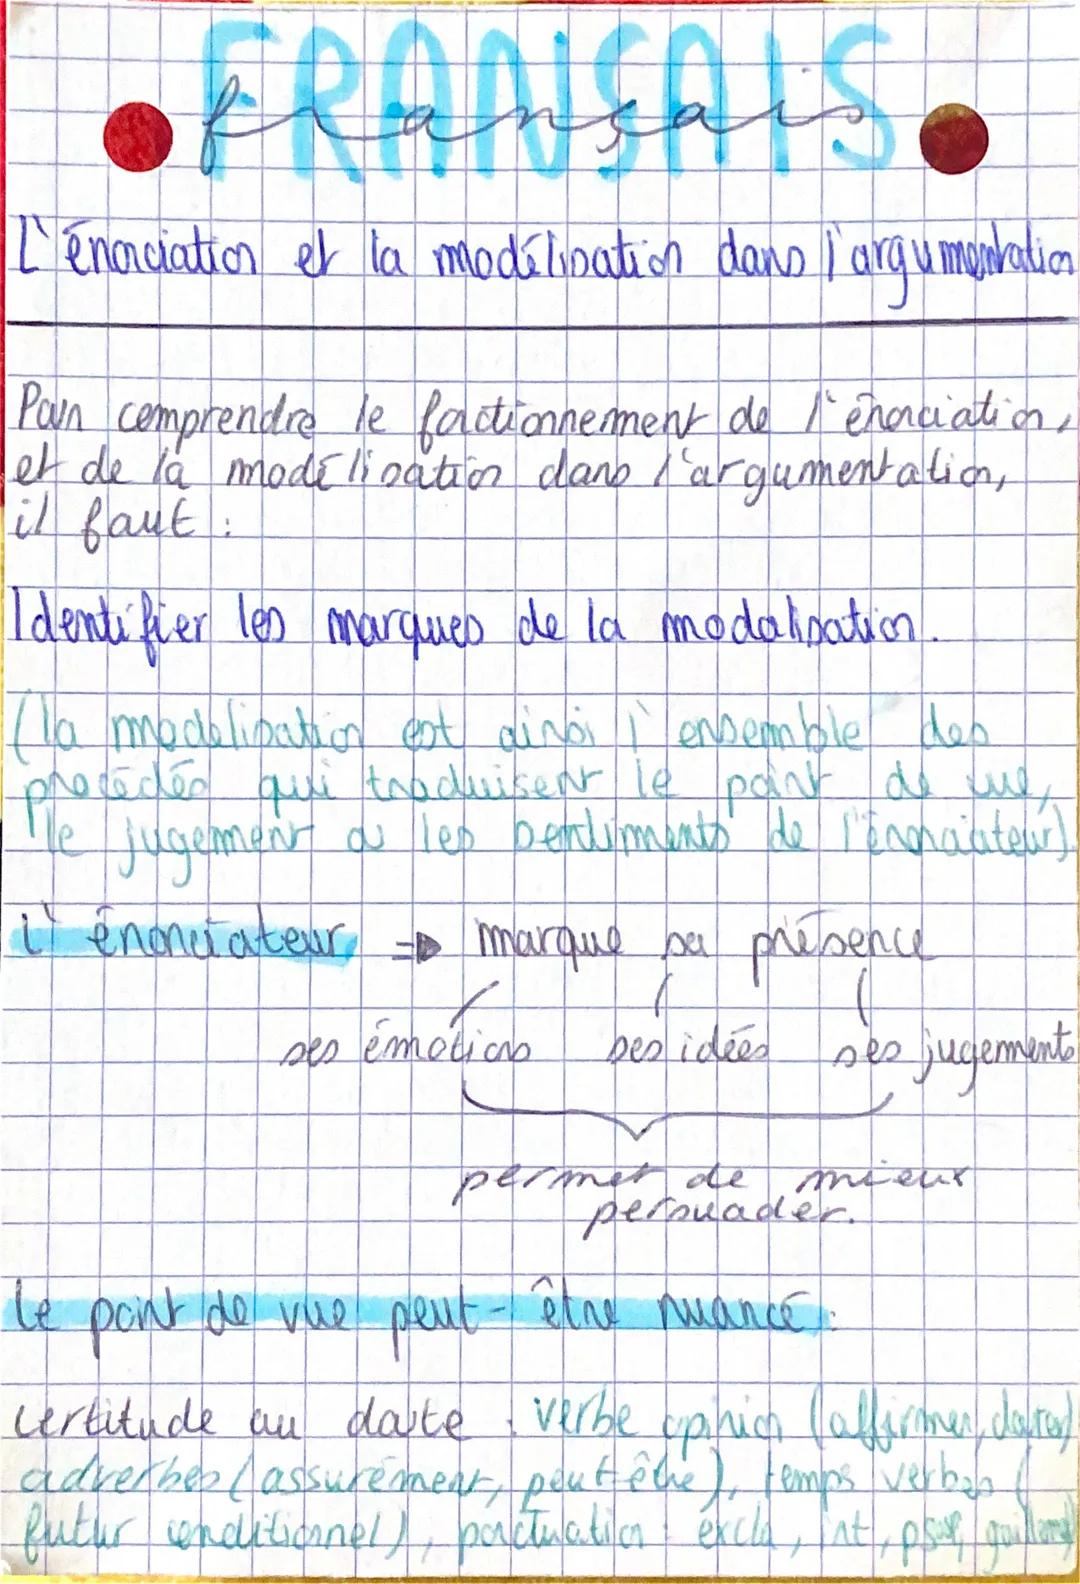 FRANÇAIS
français
L'énonciation et la modélisation dans l'argumentation
Pour comprendre le fonctionnement de l'énonciation,
et de la modélisation dans l'argumentation,
il faut :
Identifier les marques de la modalisation.
(la modelisation est ainsi l'ensemble des
procédés qui traduisent le point de vue,
le jugement ou les sentiments de l'énonciateur)
L'énonciateur => marque sa présence
ses émotions ses idées ses jugements
permet de mieux
persuader.
le point de vue peut-être nuancé :
certitude au doute : verbe opinion (affirmer, douter)
adverbes (assurément, peut être), temps verbes (
futur conditionnel), ponctuation : excla, int,